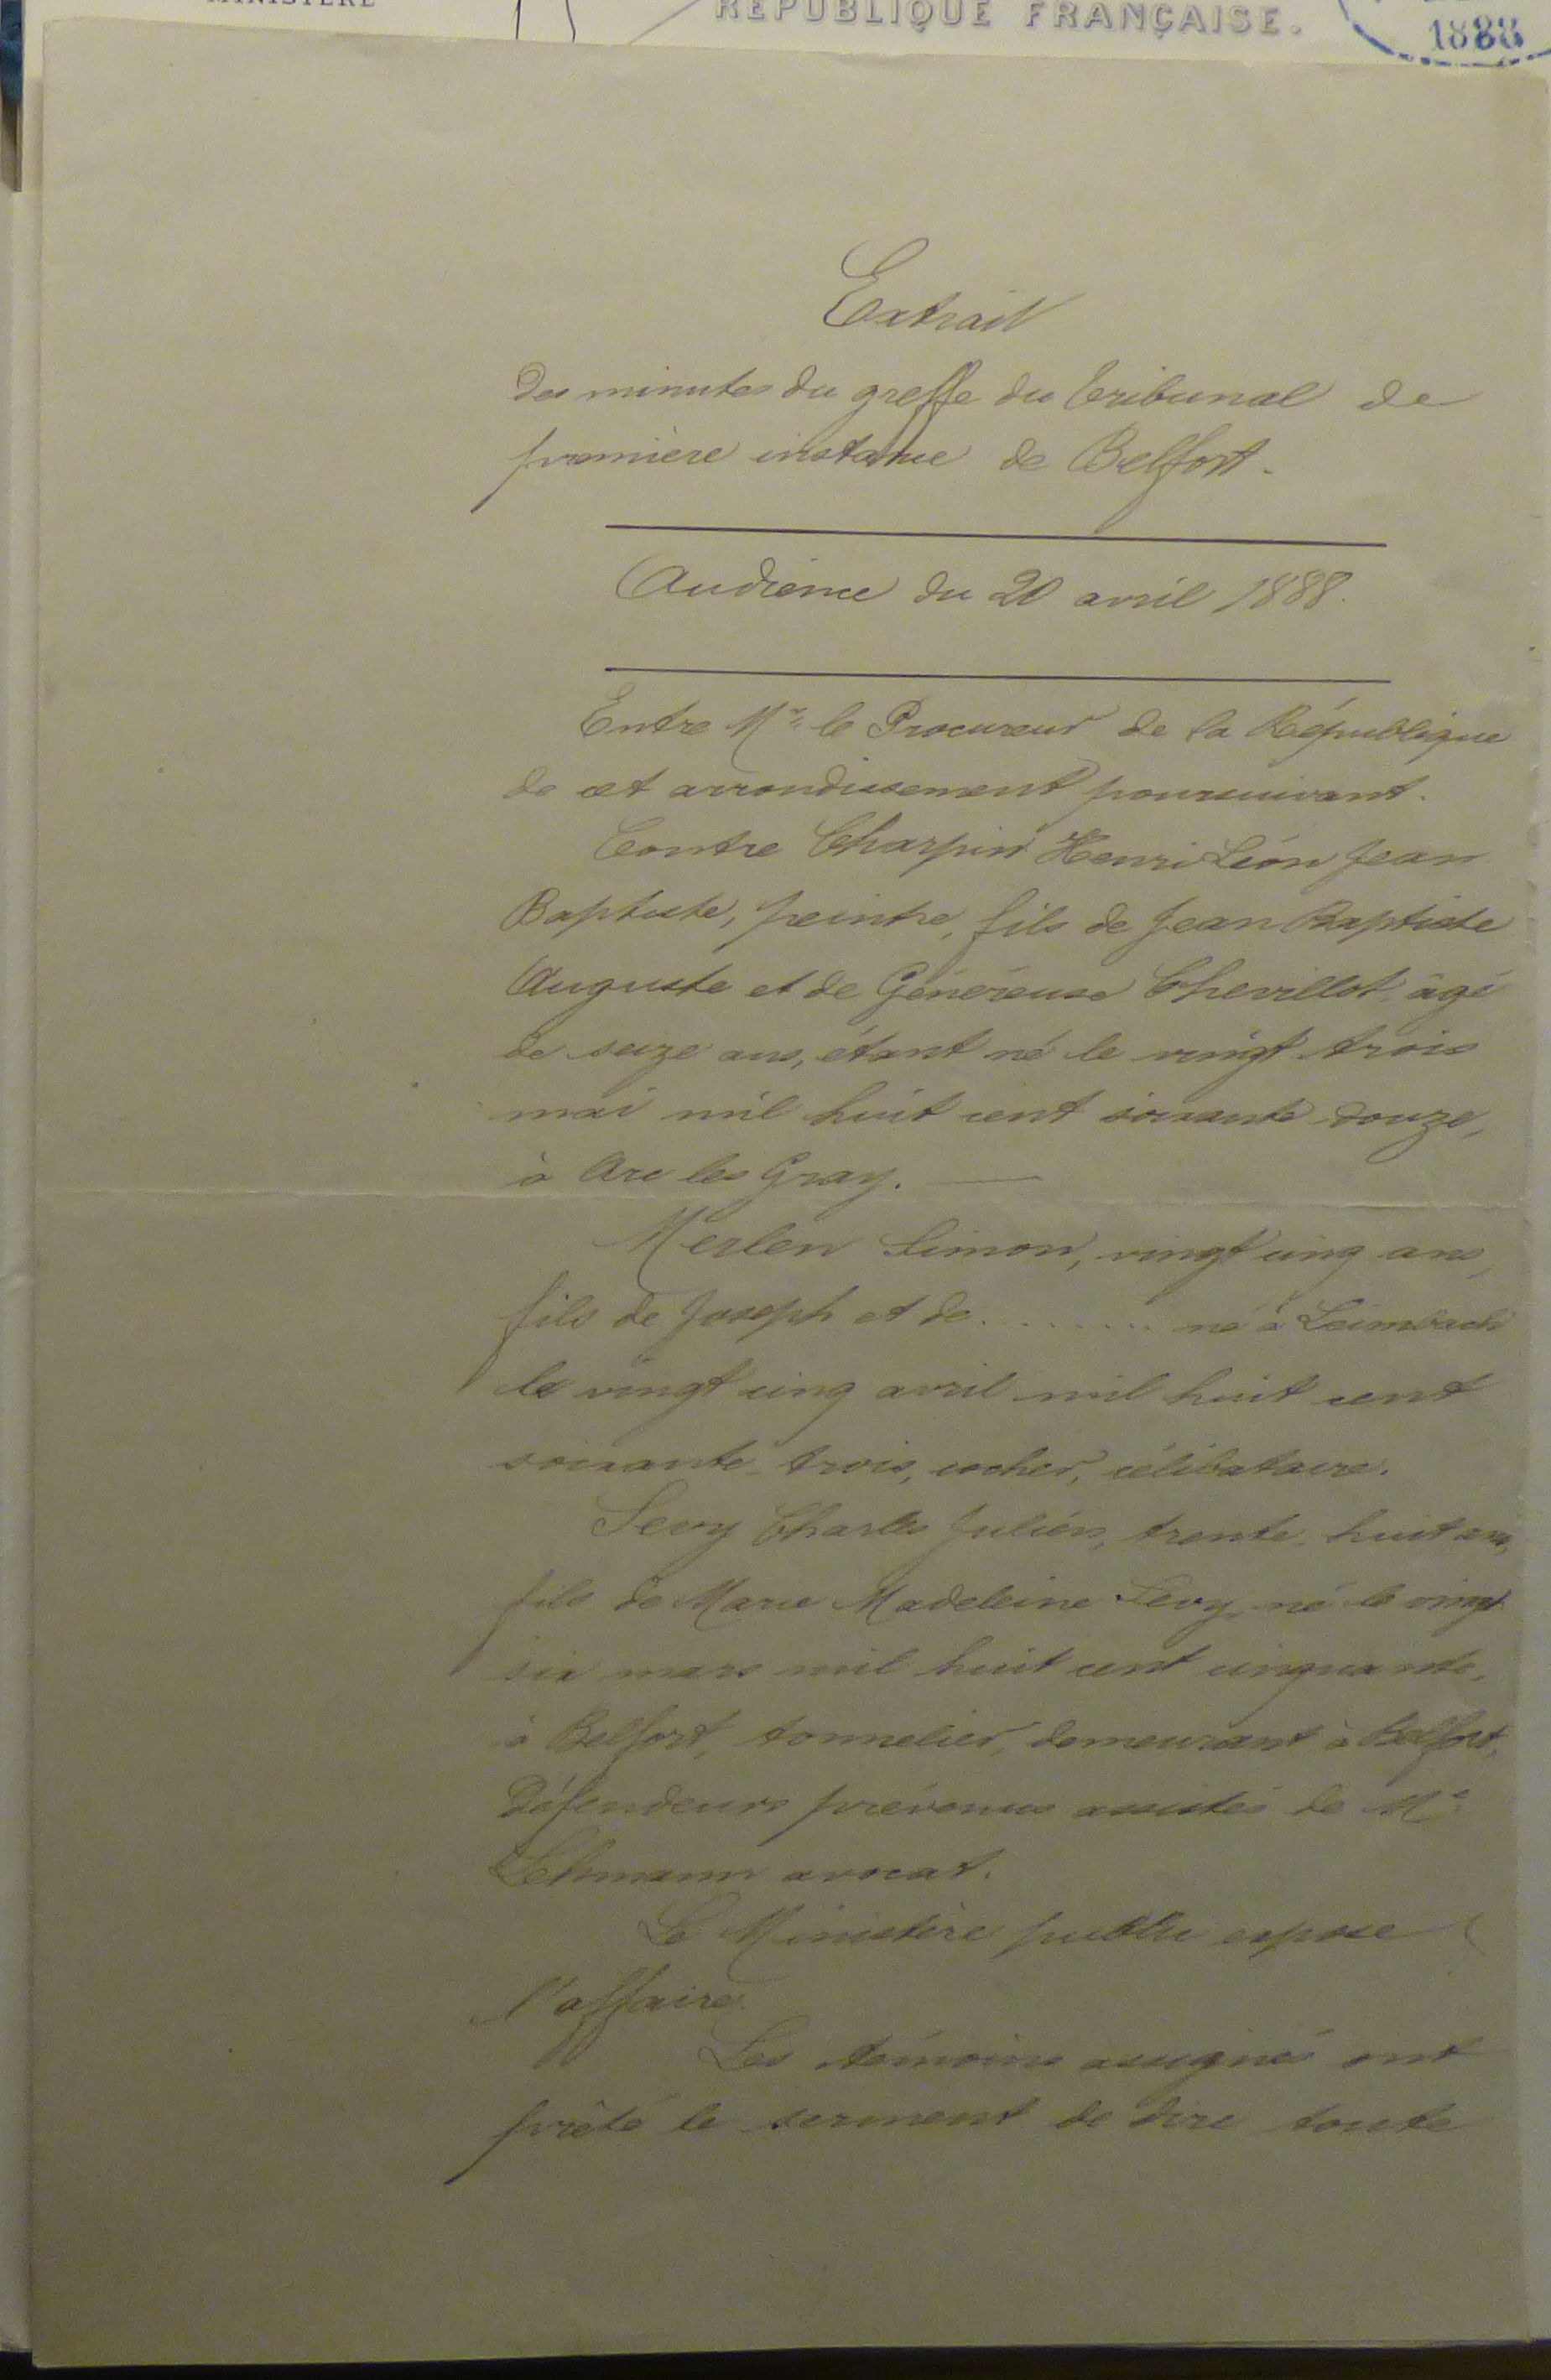 MINISTÈRE
RÉPUBLIQUE FRANÇAISE.
1888
Extrait
Des minutes du greffe du tribunal de
première instance de Belfort.
Audience du 20 avril 1888.
Entre Mr. le Procureur de la République
de cet arrondissement poursuivant.
Contre Charpin Henri Léon Jean
Baptiste, peintre, fils de Jean Baptiste
Auguste et de Généreuse Chevillot, âgé
de seize ans, étant né le vingt trois
mai mil huit cent soixante-douze,
à Arc les Gray.
Merlen Simon, vingt cinq ans,
fils de Joseph et de ......... né à Leimbach
le vingt cinq avril mil huit cent
soixante-trois, cocher, célibataire.
Levy Charles Julien, trente-huit ans,
fils de Marie Madeleine Levy, né le vingt
six mars mil huit cent cinquante,
à Belfort, tonnelier, demeurant à Belfort,
Défendeurs prévenus assistés de Me
Lehmann avocat.
Le Ministère public expose
l'affaire.
Les témoins assignés ont
prêté le serment de dire toute